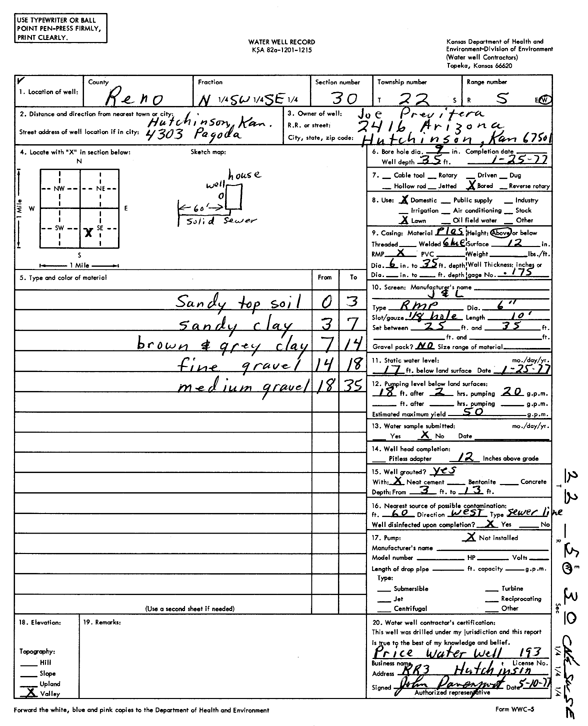 USE TYPEWRITER OR BALL
POINT PEN-PRESS FIRMLY,
PRINT CLEARLY.
WATER WELL RECORD
KSA 82a-1201-1215
Kansas Department of Health and
Environment-Division of Environment
(Water well Contractors)
Topeka, Kansas 66620
1. Location of well: County Reno Fraction N 1/4 SW 1/4 SE 1/4 Section number 30 Township number T 22 S Range number R 5 E/W
2. Distance and direction from nearest town or city: Hutchinson, Kan.
Street address of well location if in city: 4303 Pagoda
3. Owner of well: Joe Previtera
R.R. or street: 2416 Arizona
City, state, zip code: Hutchinson, Kan 67501
4. Locate with "X" in section below:
N
NW NE
W E
SW X SE
S
1 Mile
1 Mile
Sketch map:
house
well
0
60'
Solid Sewer
5. Type and color of material From To
Sandy top soil 0 3
sandy clay 3 7
brown & grey clay 7 14
fine gravel 14 18
medium gravel 18 35
(Use a second sheet if needed)
6. Bore hole dia. 9 in. Completion date
Well depth 35 ft. 1-25-77
7. Cable tool Rotary Driven Dug
Hollow rod Jetted X Bored Reverse rotary
8. Use: X Domestic Public supply Industry
Irrigation Air conditioning Stock
X Lawn Oil field water Other
9. Casing: Material Plas Height: Above or below
Threaded Welded Glue Surface 12 in.
RMP X PVC Weight lbs./ft.
Dia. 6 in. to 35 ft. depth Wall Thickness: inches or
Dia. in. to ft. depth gage No. .175
10. Screen: Manufacturer's name
J & L
Type RMP Dia. 6"
Slot/gauze 1/8 hole Length 10'
Set between 25 ft. and 35 ft.
ft. and ft.
Gravel pack? NO Size range of material
11. Static water level: mo./day/yr.
17 ft. below land surface Date 1-25-77
12. Pumping level below land surfaces:
18 ft. after 2 hrs. pumping 20 g.p.m.
ft. after hrs. pumping g.p.m.
Estimated maximum yield 50 g.p.m.
13. Water sample submitted: mo./day/yr.
Yes X No Date
14. Well head completion:
Pitless adapter 12 Inches above grade
15. Well grouted? yes
With: X Neat cement Bentonite Concrete
Depth: From 3 ft. to 13 ft.
16. Nearest source of possible contamination:
ft. 60 Direction West Type Sewer line
Well disinfected upon completion? X Yes No
17. Pump: X Not installed
Manufacturer's name
Model number HP Volts
Length of drop pipe ft. capacity g.p.m.
Type:
Submersible Turbine
Jet Reciprocating
Centrifugal Other
18. Elevation:
Topography:
Hill
Slope
Upland
X Valley
19. Remarks:
20. Water well contractor's certification:
This well was drilled under my jurisdiction and this report
is true to the best of my knowledge and belief.
Price Water Well 193
Business name License No.
Address RR3 Hutchinsin
Signed John Davenport Date 5-10-77
Authorized representative
Forward the white, blue and pink copies to the Department of Health and Environment
Form WWC-5